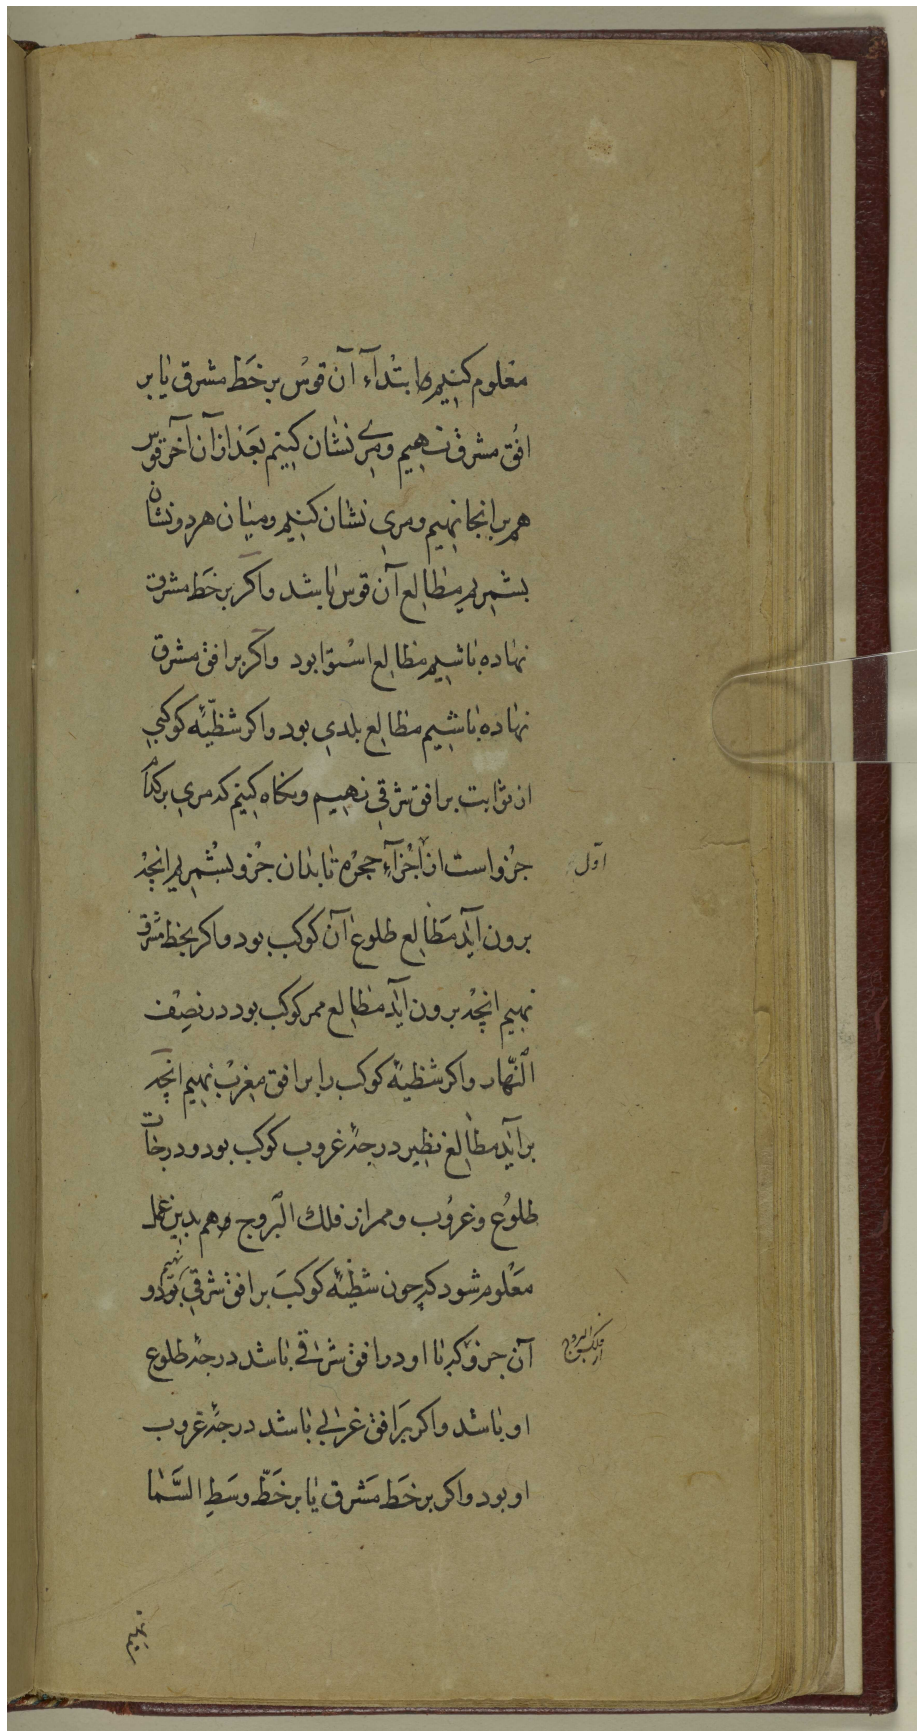 معلوم کنیم ابتداء آن قوس بر خط مشرق یا بر
افق مشرق نهیم و مری نشان کنیم بعد از آن آخر قوس
هم بر انجا نهیم و مری نشان کنیم و میان هر دو نشان
بشمریم مطالع آن قوس باشد و اکر بر خط مشرق
نهاده باشیم مطالع استوا بود و اکر بر افق مشرق
نهاده باشیم مطالع بلدی بود و اکر شظیّهٔ کوکبی
از ثوابت بر افق شرقی نهیم و نکاه کنیم که مری بر کدام
جزو است از اجزاء حجره تا بدان جزو بشمریم انچه
اول
برون آید مطالع طلوع آن کوکب بود و اکر بخط مشرق
نهیم انچه برون آید مطالع ممر کوکب بود در نصف
النّهار و اکر شظیهٔ کوکب را بر افق مغرب نهیم انچه
برآید مطالع نظیر درجهٔ غروب کوکب بود و درجات
طلوع و غروب و ممر از فلك البروج هم بدین عمل
معلوم شود که جون شظیهٔ کوکب بر افق شرقی نهیم بود و
آن جزو که با او در افق شرقی باشد درجهٔ طلوع
از فلک البروج
او باشد و اکر بر افق غربی باشد درجهٔ غروب
او بود و اکر بر خط مشرق یا بر خطّ وسط السّما